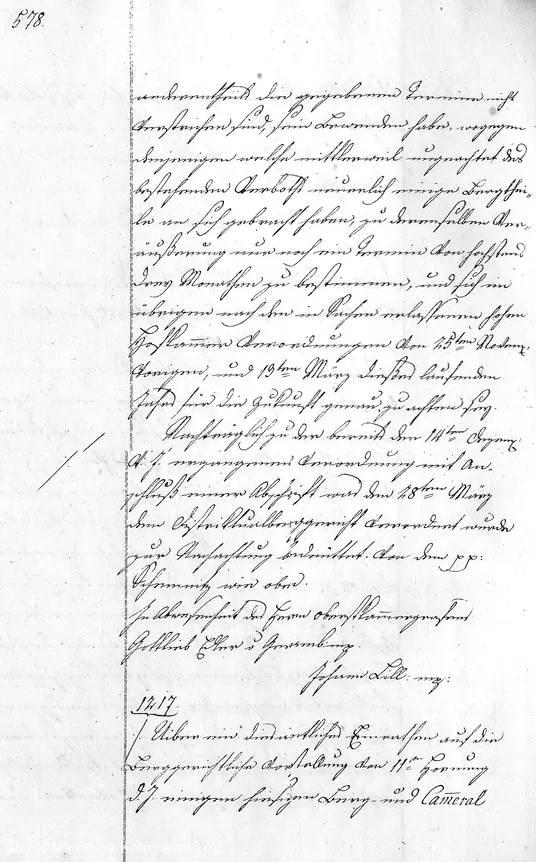 578.
anderentheils die gegebenen Termine nicht
verstrichen sind, sein Bewenden habe, wogegen
denjenigen welche mittlerweil ungeachtet des
bestehenden Verboths neuerlich einige Bergthei-
le an sich gebracht haben, zu derenselben Ver-
äußerung nur noch ein Termin von höchstens
drey Monathen zu bestimmen, und sich im
übrigen nach den in Sachen erlassenen hohen
Hofkammer Verordnungen von 25ten Novem.
vorigen, und 19ten März dießes laufenden
Jahrs für die Zukunft genau zu achten sey.
Nachträglich zu der bereits den 14ten Dezem.
v. J. ergangenen Verordnung mit An-
schluß einer Abschrift was den 28ten März
dem Distriktualberggericht verordnet wurde
zur Nachachtung bedeuttet. Von dem pp:
Schemnitz wie ober.
In Abwesenheit des Herrn oberstkammergrafens
Gottlieb Edler v
Johann Lill: mp:
1217.
Uiber ein diesämtliches Einrathen auf die
Berggerichtliche Vorstellung von 11ten Hornung
d. J. einigen hiesigen Berg- und Cameral